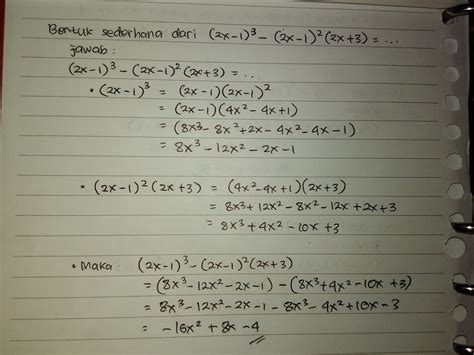 Bentuk sederhana dari (2x-1)³ - (2x-1)²(2x+3) = ...
Jawab :
(2x-1)³ - (2x-1)²(2x+3) = ...
• (2x-1)³ = (2x-1)(2x-1)²
= (2x-1)(4x²-4x+1)
= (8x³-8x²+2x-4x²-4x-1)
= 8x³-12x²-2x-1
• (2x-1)²(2x+3) = (4x²-4x+1)(2x+3)
= 8x³+12x²-8x²-12x+2x+3
= 8x³+4x²-10x+3
• Maka : (2x-1)³-(2x-1)²(2x+3)
= (8x³-12x²-2x-1)-(8x³+4x²-10x+3)
= 8x³-12x²-2x-1-8x³-4x²+10x-3
= -16x²+8x-4